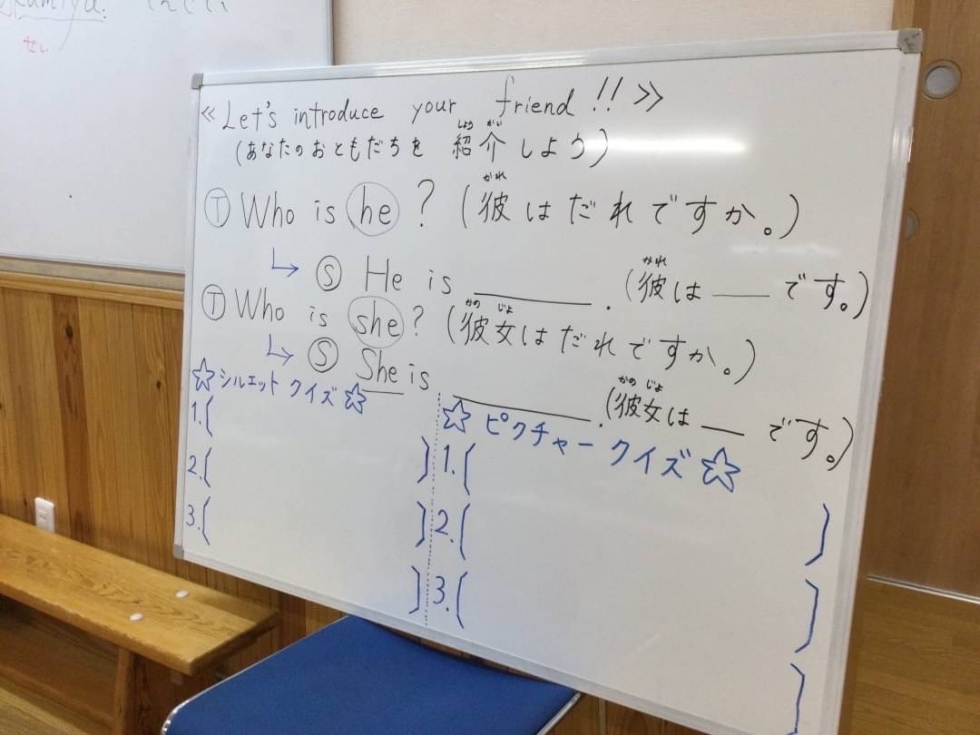 せい
≪Let's introduce your friend!!≫
(あなたのおともだちを紹介しよう)
Ⓣ Who is he? (彼はだれですか。)
↳ Ⓢ He is ______. (彼は ___ です。)
Ⓣ Who is she? (彼女はだれですか。)
↳ Ⓢ She is ______. (彼女は ___ です。)
☆シルエットクイズ☆
1.[ ]
2.[ ]
3.[ ]
☆ピクチャークイズ☆
1.[ ]
2.[ ]
3.[ ]